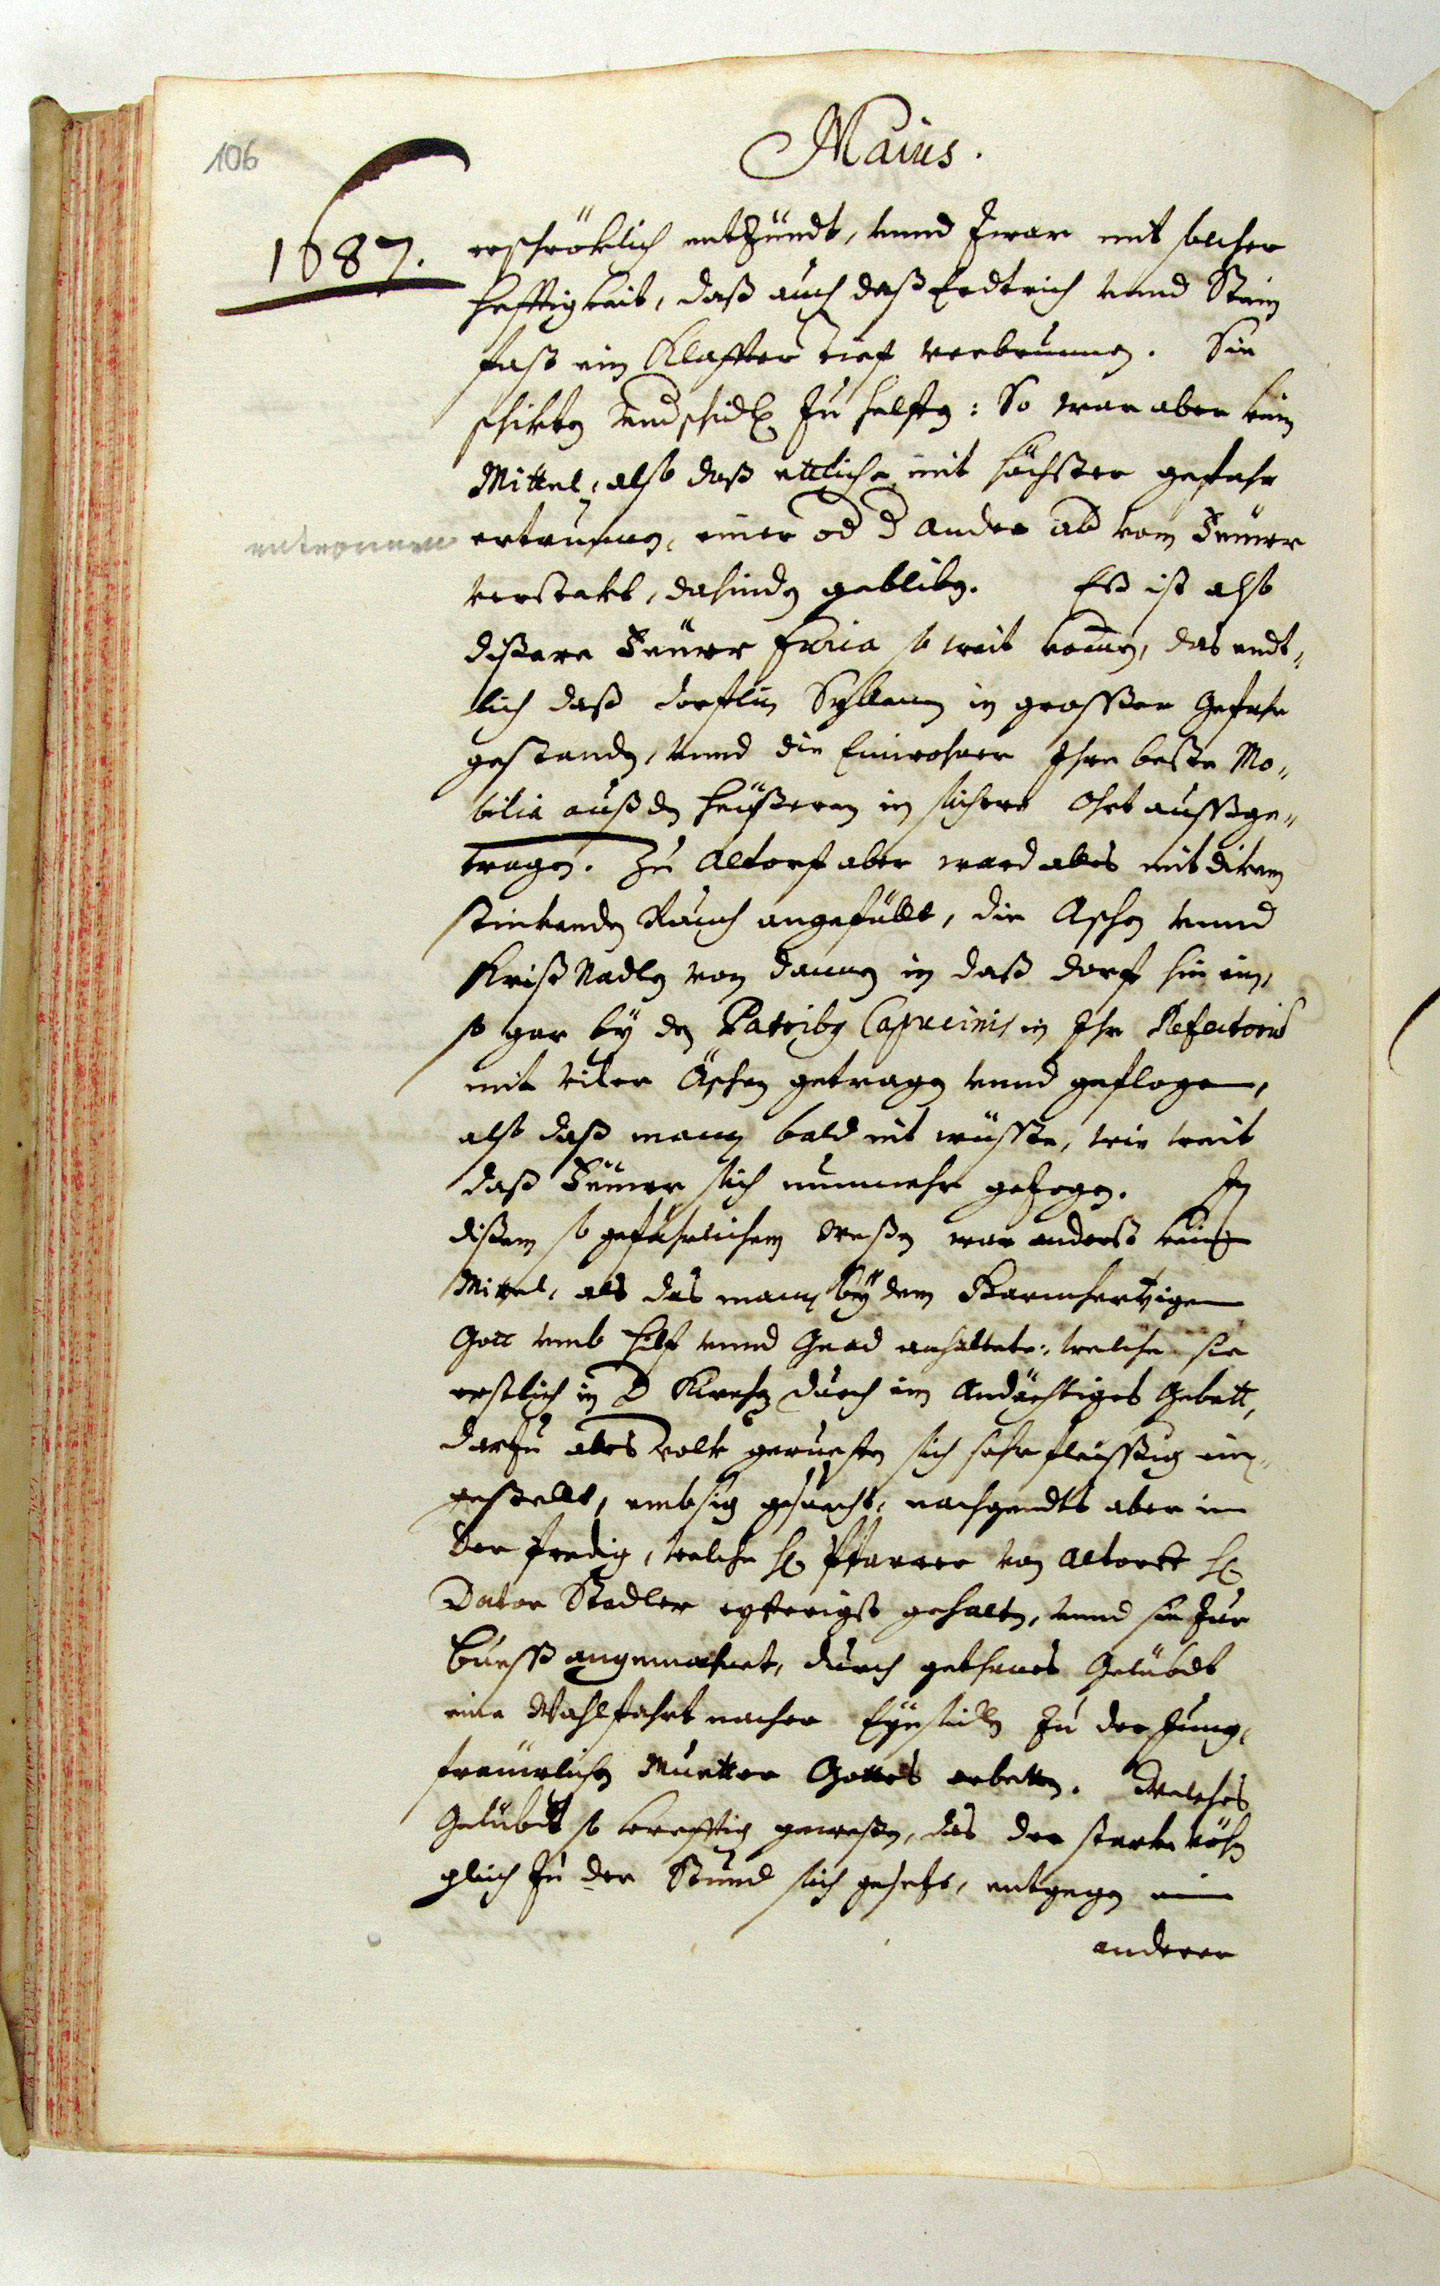 106
Maius.
1687.
erschröklich entzündt, vnnd zwar mit solcher
hefftigkeit, daß auch daß Erdtrich vnnd Stein
fast ein Klaffter tief verbrunnen. Sie
schikten zu helffen: So war aber kein
Mittel, also daß ettliche mit höchster gefahr
entrunnen, einer od d ander ab vom Feüwr
ersteckt, dahinden gebliben. Eß ist also
dißere Feüwr furia so weit komen, das endt-
lich daß dorfflin Syllenen in grosser Gefahr
gestanden, vnnd die Einwohner Ihre beste Mo-
bilia auß den heüßeren in sichere Ohrt aussge-
tragen. Zu Altorf aber ward alles mit dikem
stinkenden Rauch angefüllt, die Aschen vnnd
Kriß Nadlen von dannen in daß dorf hin ein,
so gar by den Patribus Capucinis in Ihr Refectoriu
mit viler Äschen getragen vnnd geflogen,
also daß mann bald nit wüsste, wie weit
daß Feüwr sich nunmehr gezogen. In
dißem so gefährlichem Weßen war anderst kein
Mittel, als das mann by dem Barmhertzigen
Gott vmb hilf vnnd Gnad anhaltete: welche sie
erstlich in D Kirchen durch ein Andächtiges Gebett,
darzu alles volk geruefen sich sehr fleissig ein-
gestellt, embsig gesuecht, nachgendts aber in
der Predig, welche H. Pfarrer von Altorff H.
Dator Stadler eyferigst gehalten, vnnd sie zur
buess angemahnet, durch gethanes Gelübdt
eine Wahlfahrt nacher Eynsidlen zu der Jung-
freüwlichen Muetter Gottes erbetten. Welches
Gelübdt so krefftig gewesen, das der starke föhn
gleich zu der Stund sich gesetzt, entgegen ein
anderer
entronnen